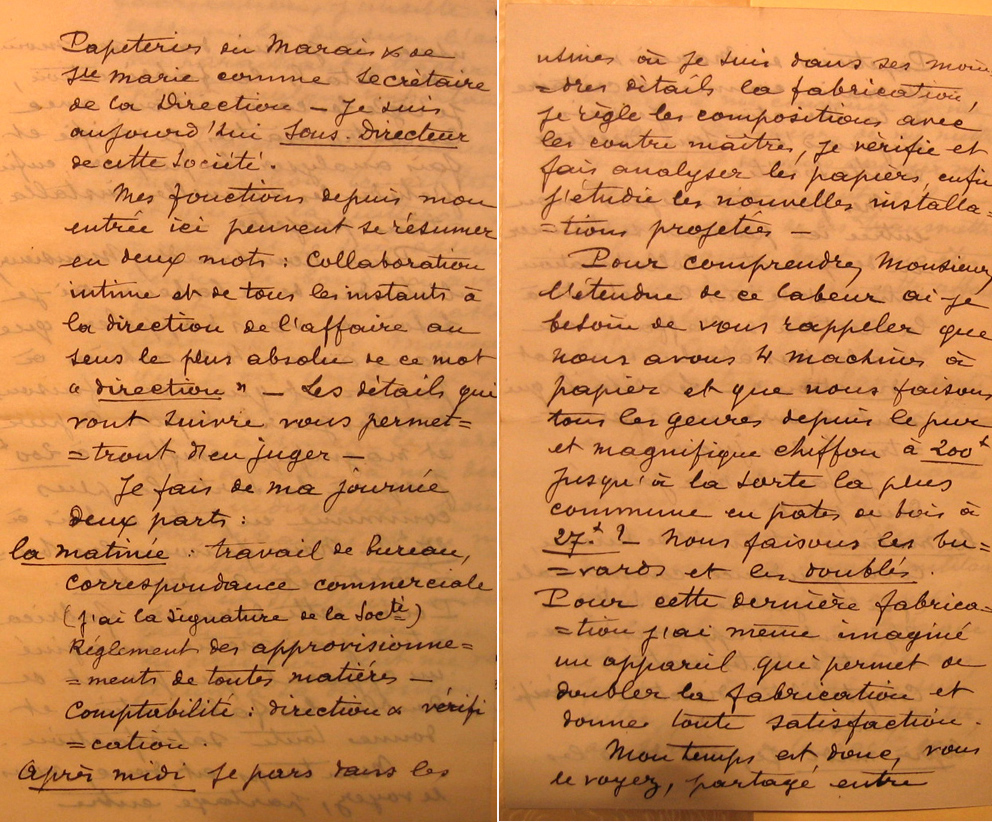 Papeteries du Marais & de
Ste Marie comme Secrétaire
de la Direction — Je suis
aujourd'hui Sous-Directeur
de cette Société.
Mes fonctions depuis mon
entrée ici peuvent se résumer
en deux mots : Collaboration
intime et de tous les instants à
la direction de l'affaire au
sens le plus absolu de ce mot
" direction " — Les détails qui
vont suivre vous permet=
=tront d'en juger —
Je fais de ma journée
deux parts :
la matinée : travail de bureau,
correspondance commerciale
(j'ai la signature de la Socté)
Réglement des approvisionne=
=ments de toutes matières —
Comptabilité : direction & vérifi
=cation.
Après midi je pars dans les
usines où je suis dans ses moin
=dres détails la fabrication,
je règle les compositions avec
les contre maîtres, je vérifie et
fais analyser les papiers, enfin
j'étudie les nouvelles installa=
=tions projetées —
Pour comprendre, Monsieur,
l'étendue de ce labeur ai-je
besoin de vous rappeler que
nous avons 4 machines à
papier et que nous faisons
tous les genres depuis le pur
et magnifique chiffon à 200f
jusqu'à la sorte la plus
commune en pates de bois à
27.f ? — Nous faisons les bu=
=vards et les doublés.
Pour cette dernière fabrica=
=tion j'ai même imaginé
un appareil qui permet de
doubler la fabrication et
donne toute satisfaction.
Mon temps est donc, vous
le voyez, partagé entre